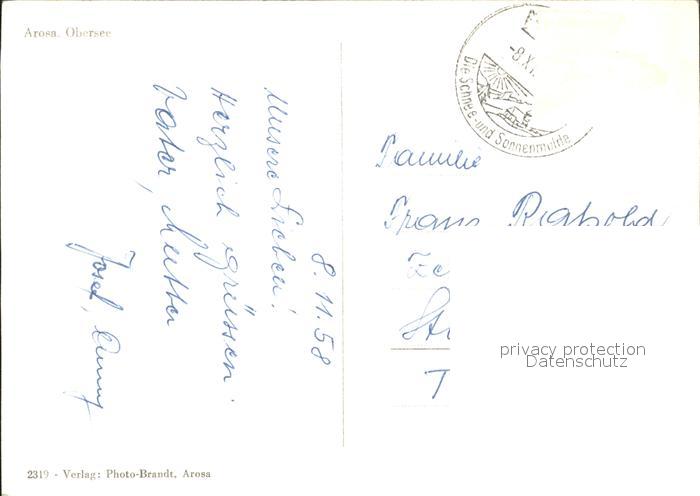 Arosa. Obersee
8. 11. 58
Unsere Lieben!
Herzlich grüssen
Vater, Mutter
Josef,
-8.XI.
Die Schnee- und Sonnenmulde
Familie
Frans
Str
T
privacy protection
Datenschutz
2319 - Verlag: Photo-Brandt, Arosa